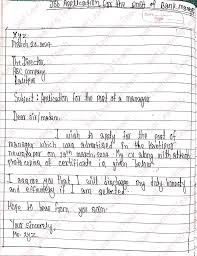 Job Application for the post of Bank manager
XYZ
March 20, 2024
The Director,
ABC company
Subject: Application for the post of a manager
Dear sir/madam,
I wish to apply for the post of
manager which was advertised in the
newspaper on 19th march, 2024. My CV along with
copies of certificate is given below.
I assure you that I will discharge my duty honestly
and efficiently if I am selected.
Hope to hear from you soon.
Your Sincerely,
Mr. XYZ